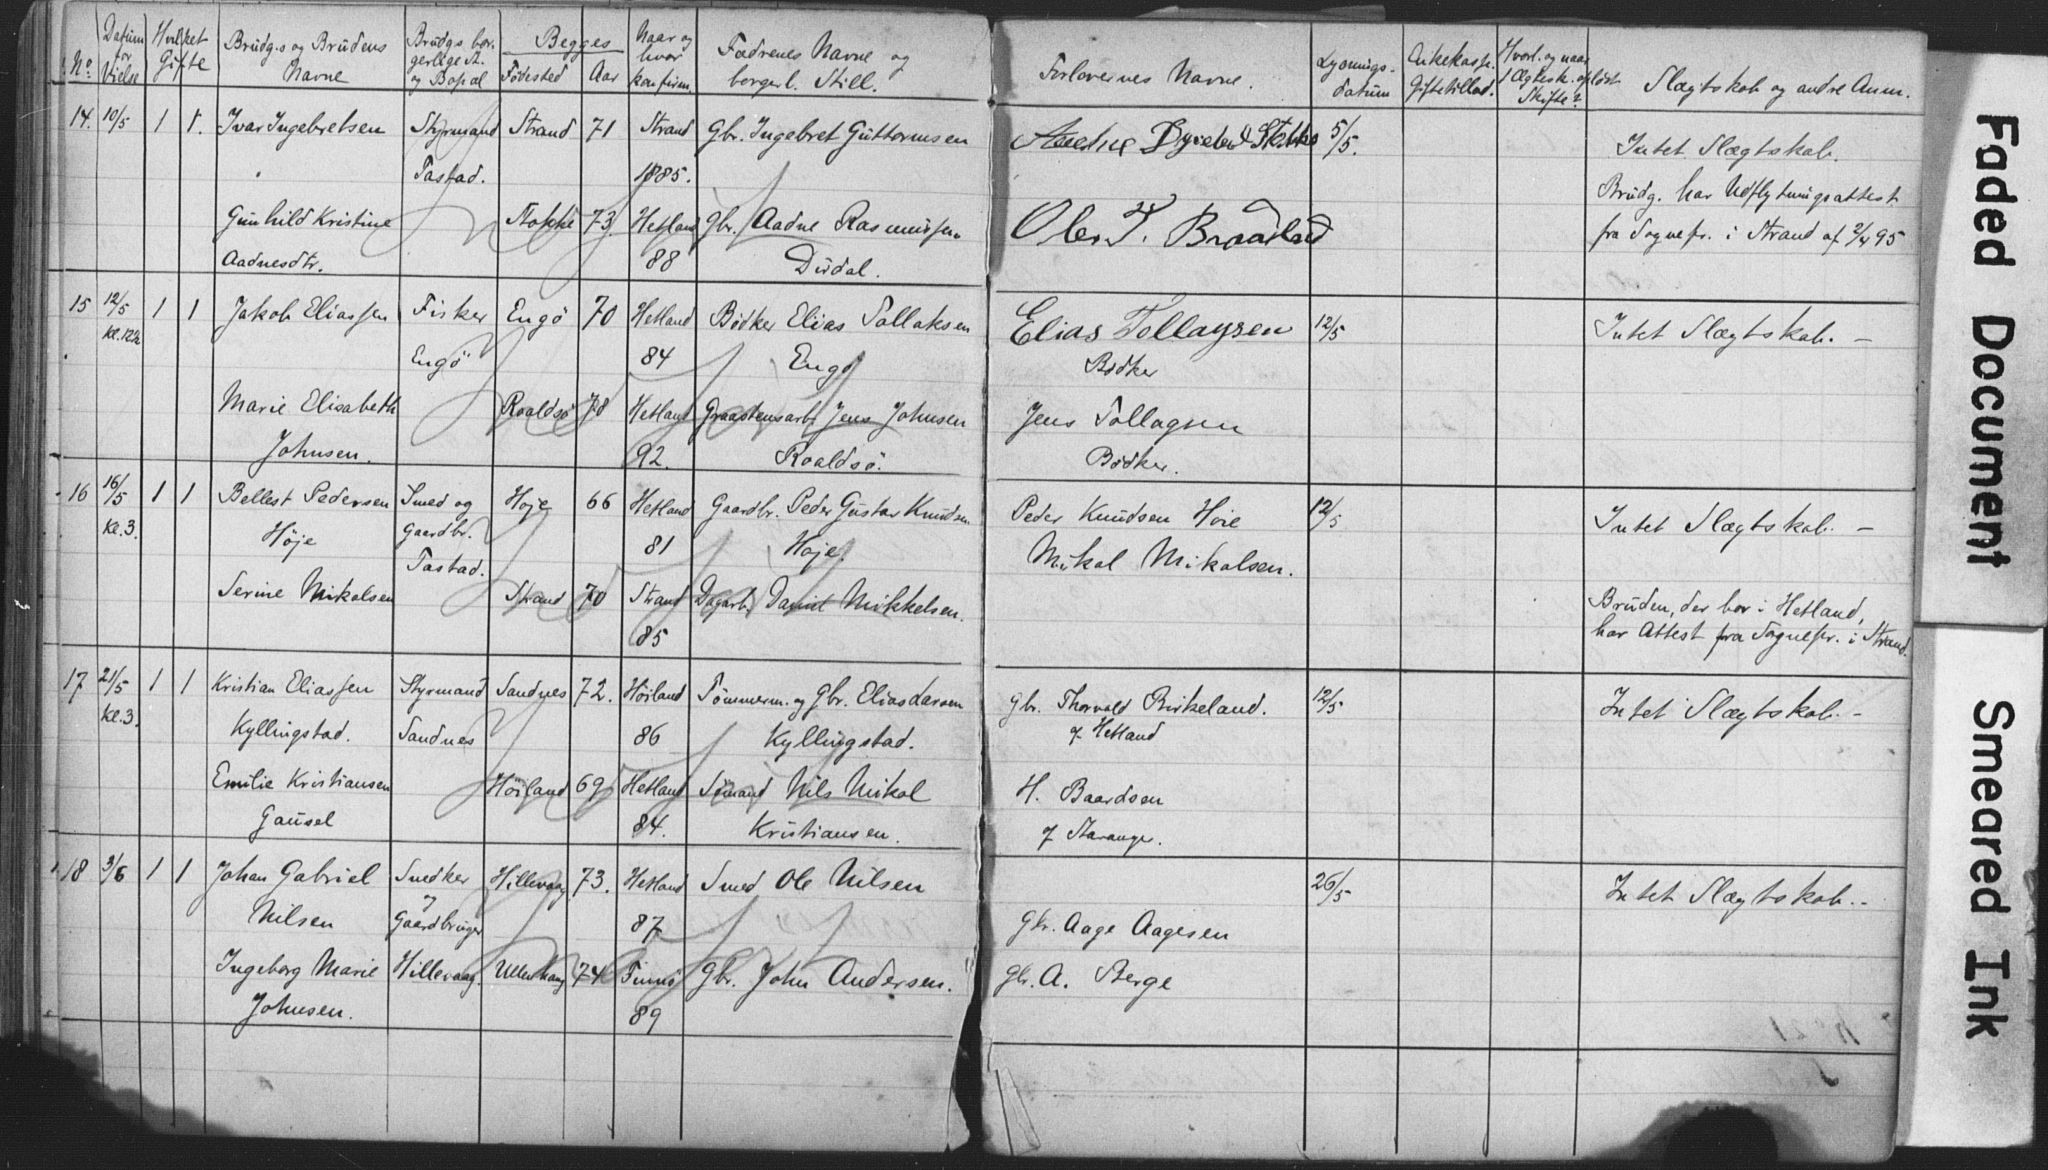 No. Datum for Vielse Hvilket Gifte Brudg.s og Brudens Navne Brudgs bor. gerlige St. og Bopæl Begges Fødested Aar Naar og hvor konfirm. Fædrenes Navne og borgerl. Still. Forlovernes Navne. Lysnings- datum Enkekasse. Giftetillad. Hvorl. og naar Ægtesk. opløst Skifte? Slægtskab og andre Anm.
14. 10/5 1 1. Ivar Ingebretsen Styrmand Strand 71 Strand Gbr. Ingebret Guttormsen 5/5. Intet Slægtskab.
Tastad. 1885. Brudg. har Udflytningsattest
Gunhild Kristine Stokke 73. Hetland Gbr. Aadne Rasmussen Ole T. Braadland fra Sognepr. i Strand af 2/4 95
Aadnesdtr. 88 Dirdal.
15 12/5 1 1 Jakob Eliassen Fisker Engö 70 Hetland Bödker Elias Tollaksen Elias Tollagsen 12/5 Intet Slægtskab. —
kl. 12½ Engö 84 Engö Bødker
Marie Elisabeth Roaldsö 78 Hetland Graastensarb. Jens Johnsen Jens Tollagsen
Johnsen. 92. Roaldsö. Bødker.
16 16/5 1 1 Bellest Pedersen Smed og Høje 66 Hetland Gaardbr. Peder Gustav Knudsen Peder Knudsen Hoie 12/5 Intet Slægtskab. —
kl. 3. Høje Gaardbr. 81 Høje. Mikal Mikalsen.
Tastad.
Serine Mikalsen Strand 70 Strand Dagarb. Daniel Mikkelsen. Bruden, der bor i Hetland,
85 har Attest fra Sognepr. i Strand.
17 21/5 1 1 Kristian Eliassen Styrmand Sandnes 72. Höiland Tömmerm. og Gbr. Elias Larsen Gbr. Thorvald Birkeland. 12/5 Intet Slægtskab. -
kl. 3. Kyllingstad. Sandnes 86 Kyllingstad. af Hetland
Emilie Kristiansen Höiland 69 Hetland Sömand Nils Mikal H. Baardsen
Gausel 84. Kristiansen. af Stavanger.
18 3/6 1 1 Johan Gabriel Snedker Hillevaag 73. Hetland Smed Ole Nilsen 26/5 Intet Slægtskab. -
Nilsen Gaardbruger 87 Gbr. Aage Aagesen
Ingeborg Marie Hillevaag. Ullenhaug 74 Finnö Gbr. John Andersen. Gbr. A. Berge
Johnsen. 89
Faded Document
Smeared Ink